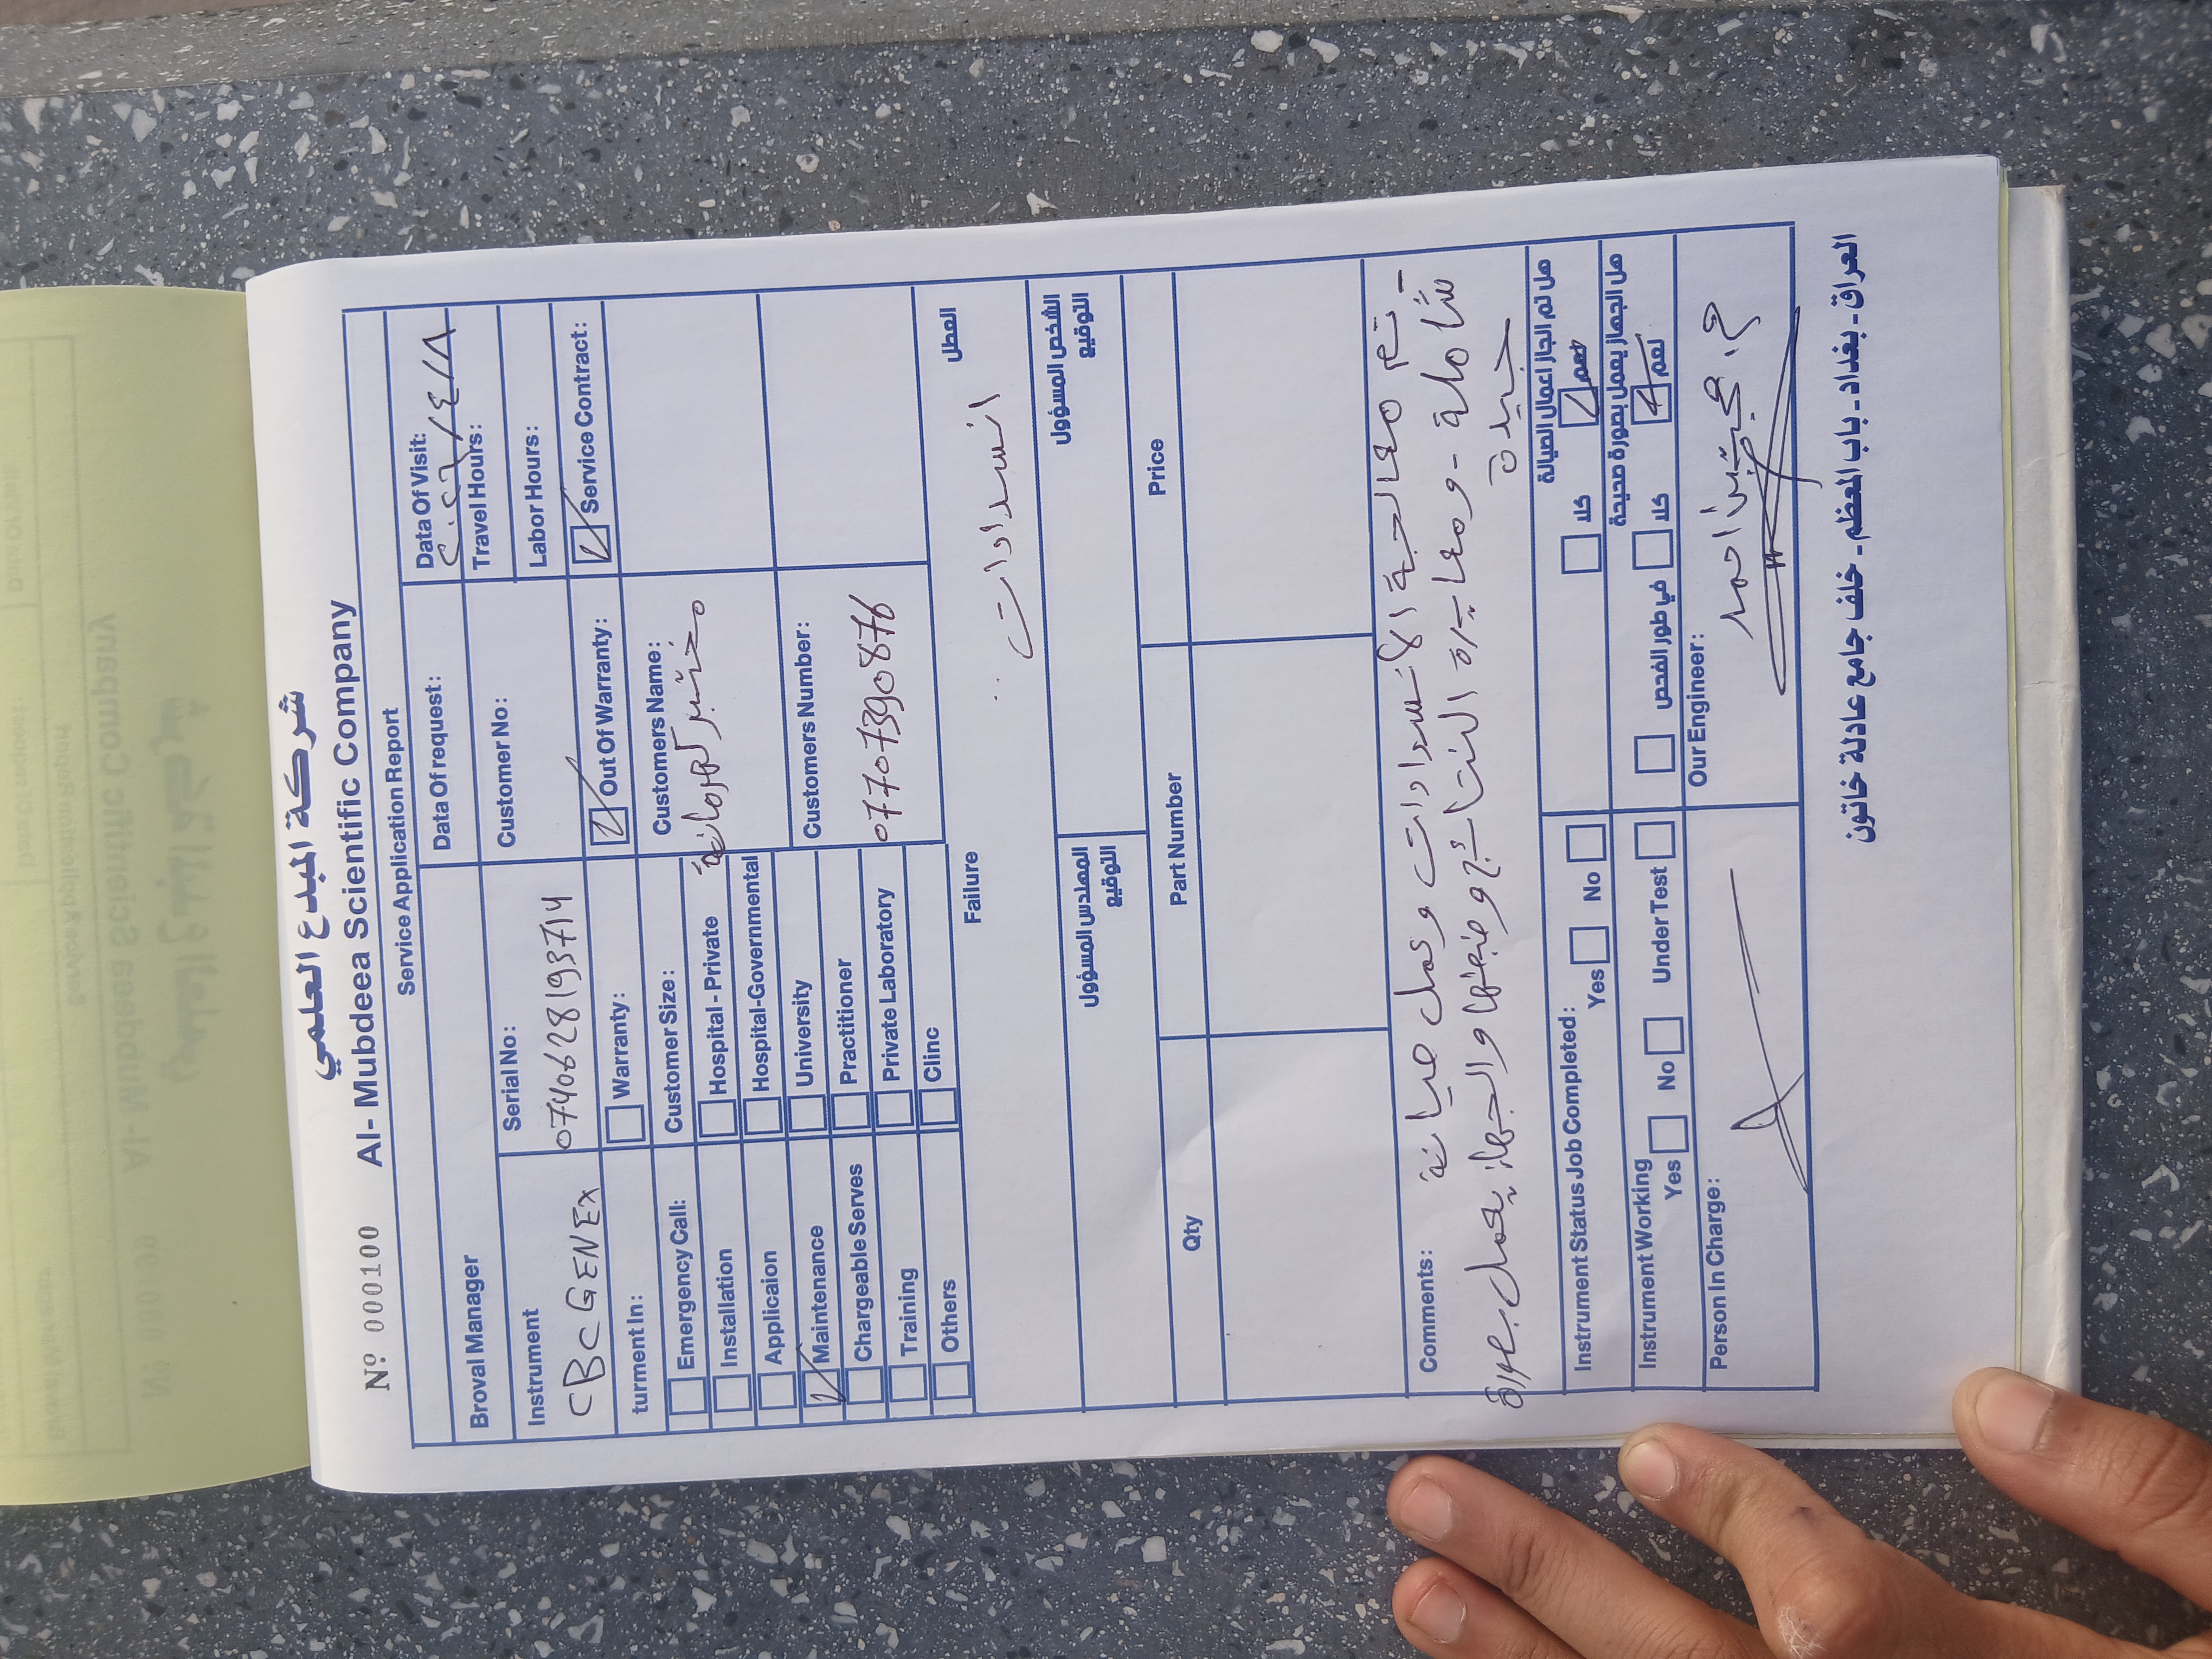 شركة المبدع العلمي
Nº 000100 Al- Mubdeea Scientific Company
Service Application Report
Data Of request:
Data Of Visit:
٢٠٢٦/٤/٨
Broval Manager
Customer No:
Travel Hours:
Labor Hours:
Instrument
CBC GENEX
Serial No:
0740628193714
turment In:
Warranty:
Out Of Warranty:
Service Contract:
Emergency Call:
Installation
Applicaion
Maintenance
Chargeable Serves
Training
Others
Customer Size:
Hospital - Private
Hospital-Governmental
University
Practitioner
Private Laboratory
Clinc
Customers Name:
مختبر
Customers Number:
07707390876
Failure
العطل
انسدادات
المهندس المسؤول
التوقيع
الشخص المسؤول
التوقيع
Qty
Part Number
Price
Comments:
- تم معالجة الانسدادات وعمل صيانة
شاملة - ومعايرة النتائج وضبطها والجهاز يعمل بصورة
جيدة
Instrument Status Job Completed :
Yes No
هل تم انجاز اعمال الصيانة
كلا نعم
Instrument Working
Yes No Under Test
هل الجهاز يعمل بصورة صحيحة
في طور الفحص كلا نعم
Person In Charge:
Our Engineer:
احمد
العراق - بغداد - باب المعظم - خلف جامع عادلة خاتون